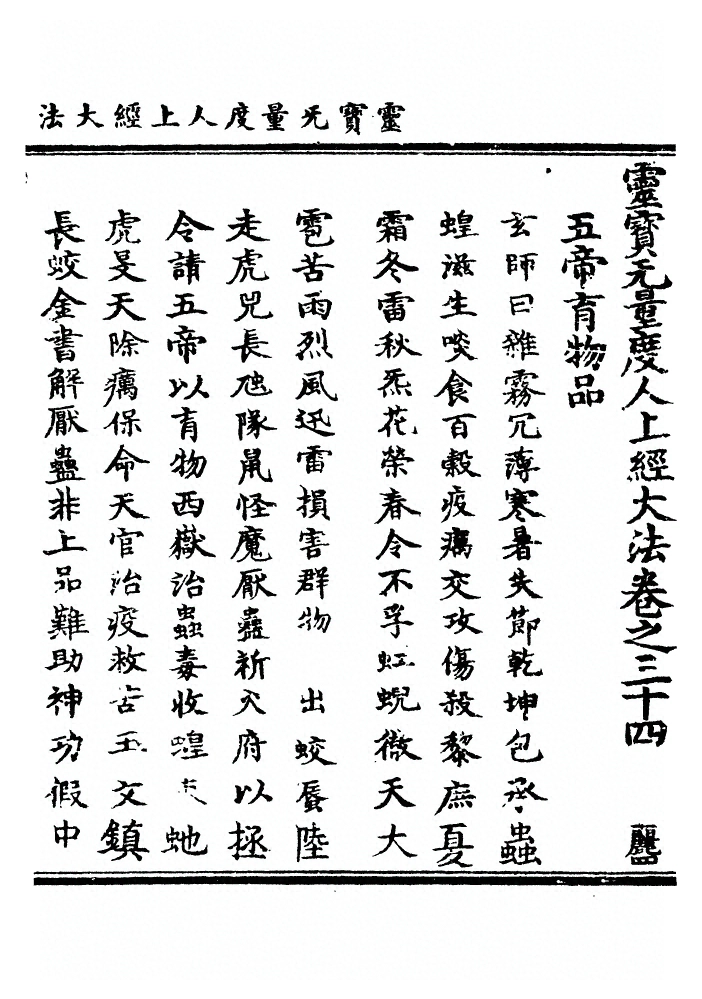 靈寶无量度人上經大法
靈寶无量度人上經大法卷之三十四 麗四
五帝育物品
玄師曰雜霧冗薄寒暑失節乾坤包承蟲
蝗滋生啖食百穀疫癘交攻傷殺黎庶夏
霜冬雷秋炁花榮春令不孚虹蜺徹天大
雹苦雨烈風迅雷損害群物 出蛟蜃陸
走虎兕長虵隊鼠怪魔厭蠱祈入府以拯
令請五帝以育物西嶽治蟲毒收蝗 虵
虎旻天除癘保命天官治疫救苦玉文鎮
長蛟金書解厭蠱非上品難助神功假中